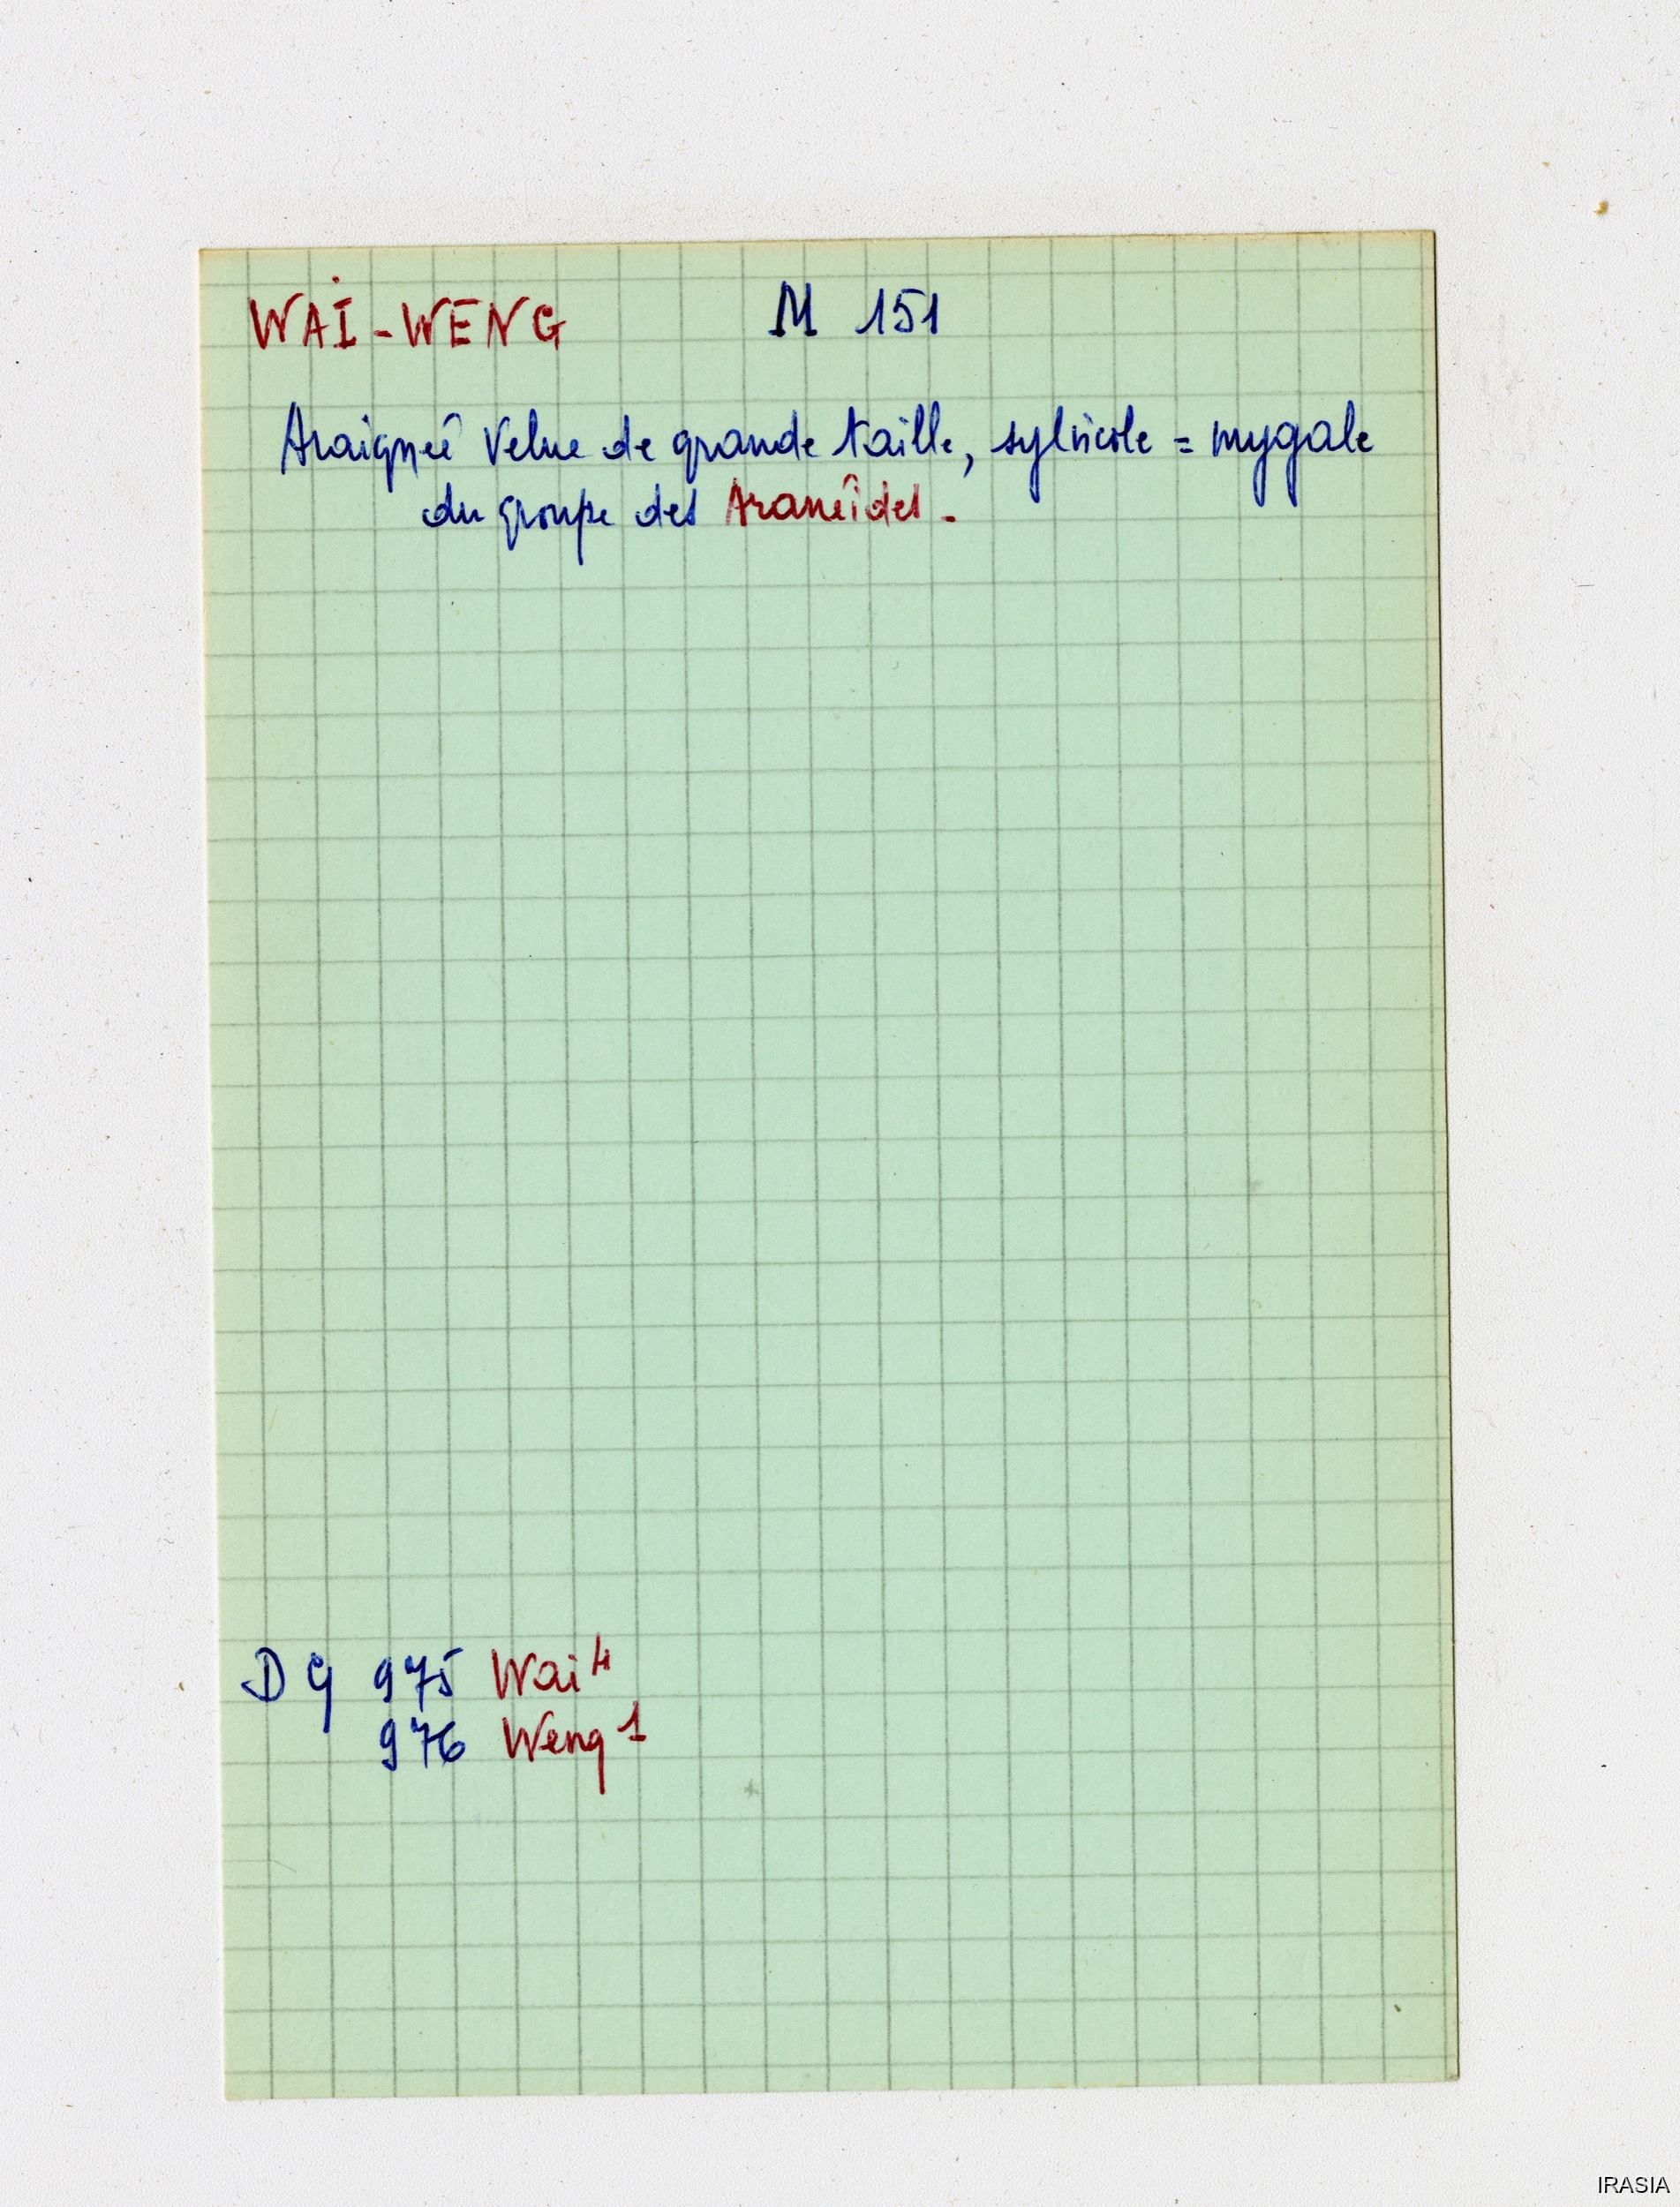 WAI-WENG M 151
Araignée velue de grande taille, sylvicole = mygale
du groupe des Aranéides.
D G 975 Wai⁴
976 Weng¹
IRASIA